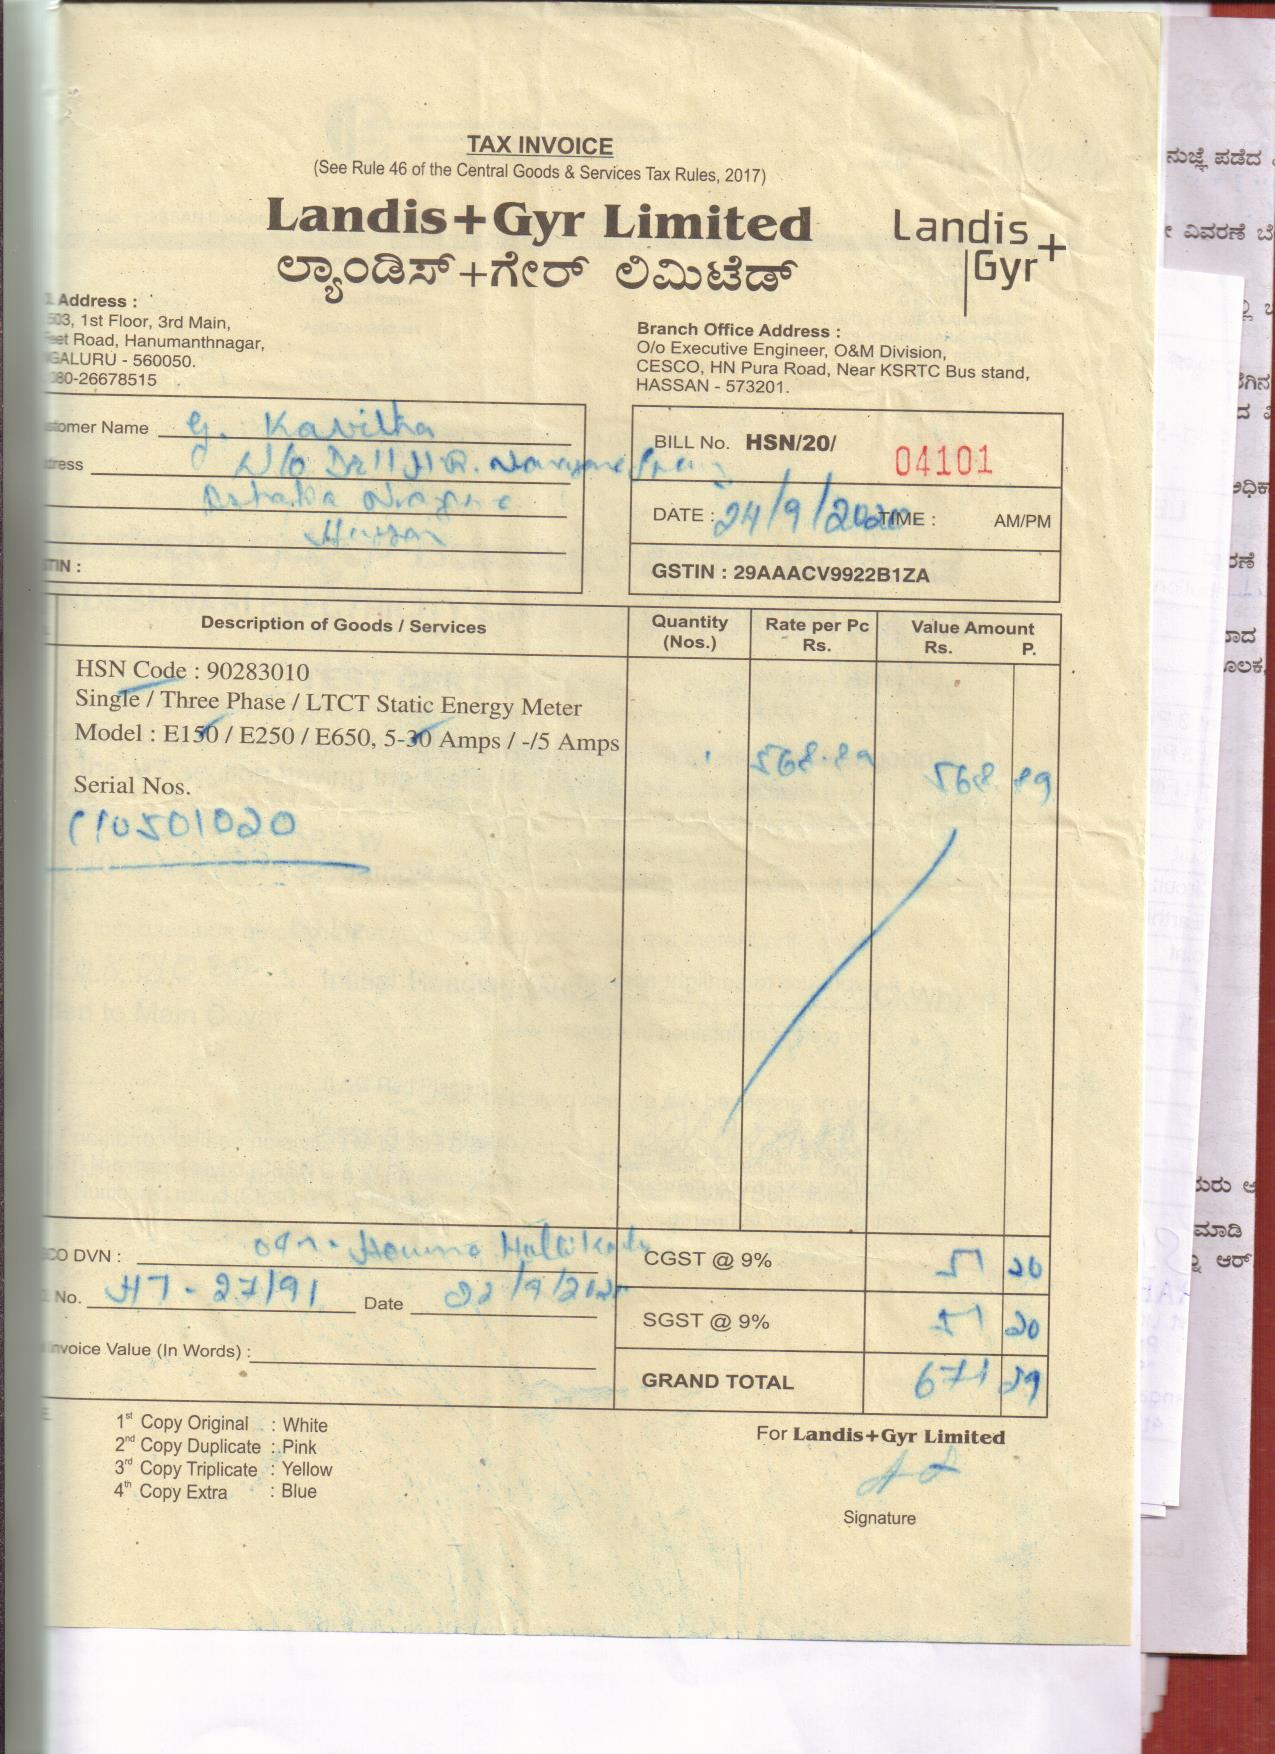 TAX INVOICE
(See Rule 46 of the Central Goods & Services Tax Rules, 2017)
Landis+Gyr Limited
ಲ್ಯಾಂಡಿಸ್+ಗೇರ್ ಲಿಮಿಟೆಡ್
Landis
Gyr+
Address :
503, 1st Floor, 3rd Main,
Feet Road, Hanumanthnagar,
GALURU - 560050.
080-26678515
Branch Office Address :
O/o Executive Engineer, O&M Division,
CESCO, HN Pura Road, Near KSRTC Bus stand,
HASSAN - 573201.
tomer Name G. Kavitha
dress W/o Dr H.R.
Hassan
TIN :
BILL No. HSN/20/ 04101
DATE : 24/9/2020 TIME : AM/PM
GSTIN : 29AAACV9922B1ZA
Description of Goods / Services Quantity (Nos.) Rate per Pc Rs. Value Amount Rs. P.
HSN Code : 90283010
Single / Three Phase / LTCT Static Energy Meter
Model : E150 / E250 / E650, 5-30 Amps / -/5 Amps
1 568.89 568 89
Serial Nos.
110501020
CO DVN :
CGST @ 9% 51 20
No. HT-27/91 Date 22/9/2020
SGST @ 9% 51 20
Invoice Value (In Words) :
GRAND TOTAL 671 29
1st Copy Original : White
2nd Copy Duplicate : Pink
3rd Copy Triplicate : Yellow
4th Copy Extra : Blue
For Landis+Gyr Limited
Signature
ಪಡೆದ
ವಿವರಣೆ
ಮಾಡಿ
ಆರ್